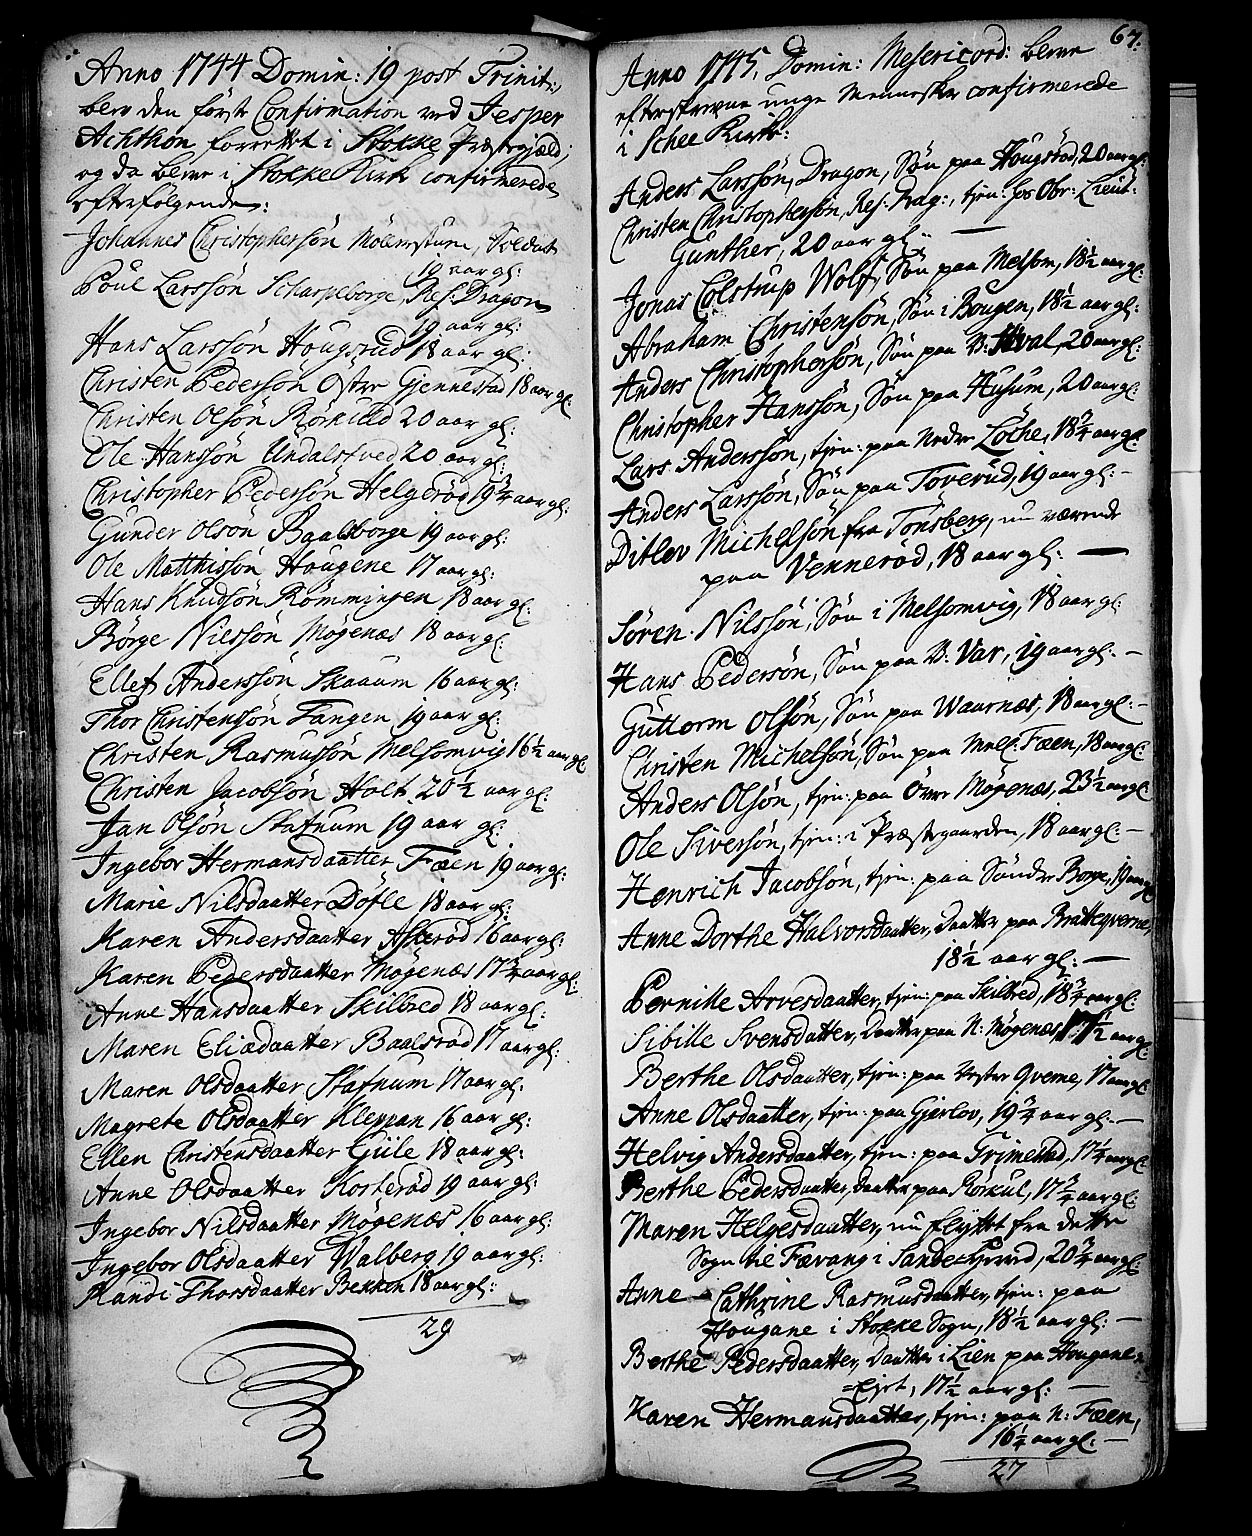 Anno 1744 Domin: 19 post Trinit:,
blev den første Confirmation ved Jesper
Achthon forrettet i Stokke Præstegjæld,
og da bleve i Stokke Kirk confirmerede
efterfølgende:
Johannes Christophersøn Soldat
19 aar gl:
Poul Larssøn Scharpeborge, Res: Dragon
19 aar gl:
Hans Larssøn Hougsrud 18 aar gl:
Christen Pedersøn Øster Gjennestad 18 aar gl:
Christen Olsøn Rørkuld 20 aar gl:
Ole Hansøn Undalsrved 20 aar gl:
Christopher Pedersøn Helgerød 19 3/4 aar gl:
Gunder Olsøn Baalsborge 19 aar gl:
Ole Matthissøn Hougene 17 aar gl:
Hans Knudsøn Rømmingen 18 aar gl:
Børge Nielssøn Møgenæs 18 aar gl:
Ellef Anderssøn Skaaum 16 aar gl:
Thor Christenssøn Tangen 19 aar gl:
Christen Rasmussøn Melsomvig 16 1/2 aar gl:
Christen Jacobsøn Holt 20 1/2 aar gl:
Jan Olsøn Stafnum 19 aar gl:
Ingebor Hermansdaatter Fæen 19 aar gl:
Marie Nilsdaatter Døfle 18 aar gl:
Karen Andersdaatter Askerød 16 aar gl:
Karen Pedersdaatter Møgenæs 17 3/4 aar gl:
Anne Hansdaatter Skilbred 18 aar gl:
Maren Eliædaatter Baalsrød 17 aar gl:
Maren Olsdaatter Stafnum 17 aar gl:
Magrete Olsdaatter Kleppan 16 aar gl:
Ellen Christensdaatter Giile 18 aar gl:
Anne Olsdaatter Kosterød 19 aar gl:
Ingebor Nilsdaatter Møgenæs 16 aar gl:
Ingebor Olsdaatter Walberg 19 aar gl:
Randi Thorsdaatter Bekken 18 aar gl:
29
67.
Anno 1745, Domin: Misericord: bleve
efterskrevne unge Mennesker confirmerede
i Schee Kirke:
Anders Larssøn, Dragon, Søn paa Hougsrød, 20 aar gl:
Christen Christophersøn, Res: Drag:, tjen: hos Obr: Lieut:
Gunther, 20 aar gl:
Jonas Colstrup Wolf, Søn paa Melsom, 18 1/2 aar gl:
Abraham Christensøn, Søn i Bougen, 18 1/2 aar gl:
Anders Christophersøn, Søn paa V: Hval, 20 aar gl:
Christopher Hanssøn, Søn paa Husum, 20 aar gl:
Lars Anderssøn, tjen: paa Nedre Løche, 18 3/4 aar gl:
Anders Larssøn, Søn paa Toverud, 19 aar gl: –
Ditlev Michelsøn fra Tønsberg, nu værende
paa Vennerød, 18 aar gl: —
Søren Nilssøn, Søn i Melsomvig, 18 aar gl:
Hans Pedersøn, Søn paa V: Var, 19 aar gl: –
Guttorm Olsøn, Søn paa Waarnæs, 18 aar gl: –
Christen Michelsøn, Søn paa Mell: Fæen, 18 aar gl:
Anders Olsøn, tjen: paa Øvre Møgenæs, 23 1/2 aar gl:
Ole Siversøn, tjen: i Præstegaarden, 18 aar gl: –
Henrich Jacobsøn, tjen: paa Søndre Borge, 19 aar gl:
Anne Dorthe Halvorsdaatter, Daatter paa Bratteqverne,
18 1/2 aar gl: —
Pernille Arvesdaatter, tjen: paa Skilbred, 18 3/4 aar gl:
Sibille Svensdatter, Daatter paa N: Møgenæs, 17 1/2 aar gl:
Berthe Olsdaatter, tjen: paa Vestre Qverne, 17 aar gl:
Anne Olsdaatter, tjen: paa Gjerlov, 19 3/4 aar gl: –
Helvig Andersdaatter, tjen: paa Trimestad, 17 1/4 aar gl:
Berthe Pedersdaatter, Daatter paa Rørkul, 17 3/4 aar gl:
Maren Helgesdaatter, nu flyttet fra dette
Sogn til Færvang i Sande-Herred, 20 3/4 aar gl:
Anne Cathrine Rasmusdaatter, tjen: paa
Hougane i Stokke Sogn, 18 1/2 aar gl: –
Berthe Pedersdaatter, Daatter i Lien paa Hougane-
=Ejet, 17 1/2 aar gl: —
Karen Hermansdaatter, tjen: paa N: Fæen,
16 1/4 aar gl: –
27